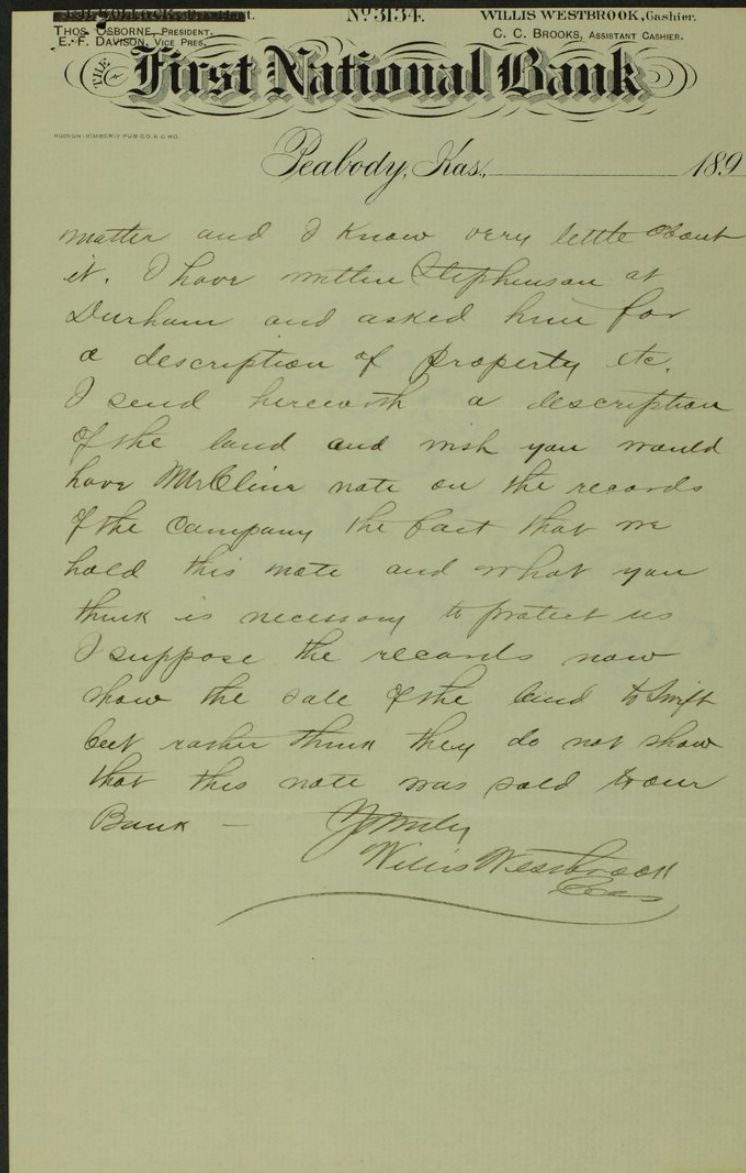 President.
No 3134.
WILLIS WESTBROOK, Cashier.
THOS. OSBORNE, PRESIDENT.
E. F. DAVISON, VICE PRES.
C. C. BROOKS, ASSISTANT CASHIER.
THE First National Bank
HUDSON-KIMBERLY PUB CO. K C MO.
Peabody, Kas., 189
matter and I know very little about
it. I have written Stephenson at
Durham and asked him for
a description of property etc.
I send herewith a description
of the land and wish you would
have Mr Cline note on the records
of the Company the fact that we
hold this note and what you
think is necessary to protect us
I suppose the records now
show the sale of the land to Swift
but rather think they do not show
that this note was sold to our
Bank — Y Truly
Willis Westbrook
Cas